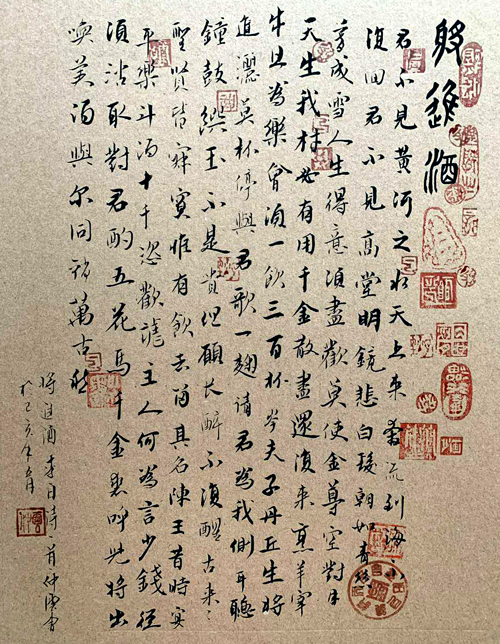 將進酒
君不見黃河之水天上來奔流到海不
復回君不見高堂明鏡悲白髮朝如青絲
暮成雪人生得意須盡歡莫使金尊空對月
天生我材必有用千金散盡還復來烹羊宰
牛且為樂會須一飲三百杯岑夫子丹丘生將
進酒莫杯停與君歌一曲請君為我側耳聽
鐘鼓饌玉不足貴但願長醉不復醒古來
聖賢皆寂寞惟有飲者留其名陳王昔時宴
平樂斗酒十千恣歡謔主人何為言少錢徑
須沽取對君酌五花馬千金裘呼兒將出
喚美酒與爾同銷萬古愁
將進酒李白詩一首仲書
於己亥年五月